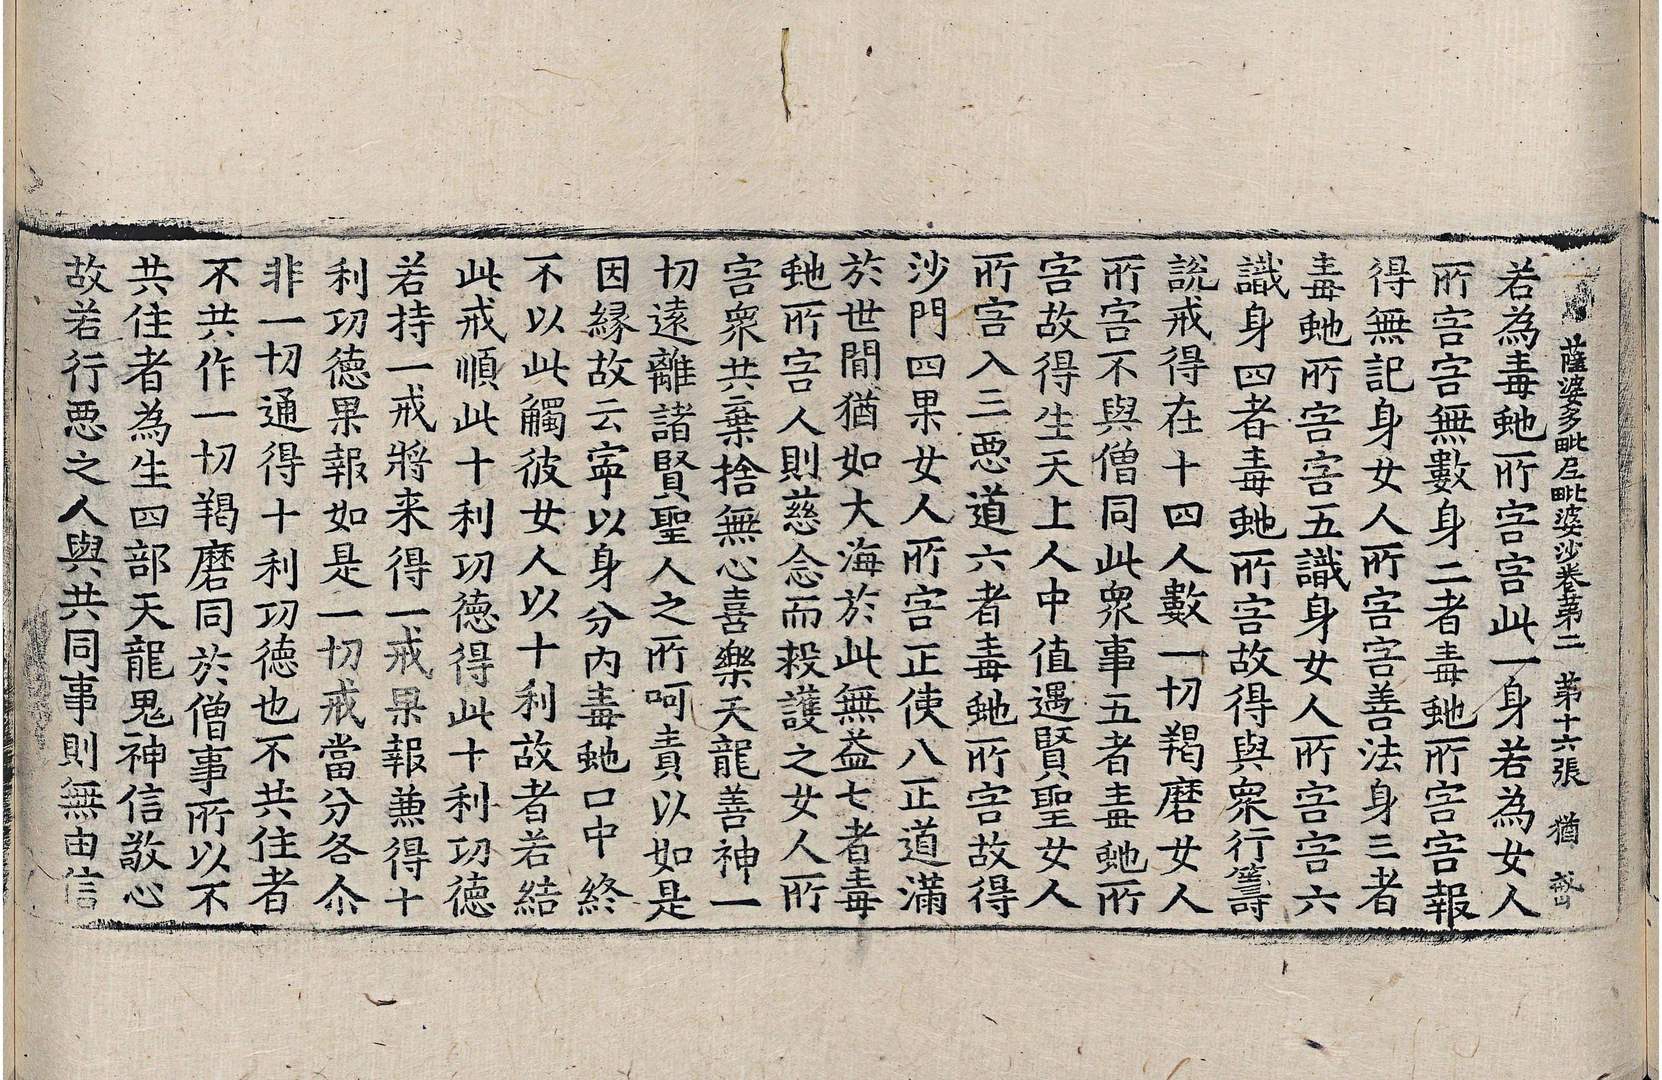 薩婆多毗尼毗婆沙卷第二　第十六張　猶
若為毒虵所害害此一身若為女人
所害害無數身二者毒虵所害害報
得無記身女人所害害善法身三者
毒虵所害害五識身女人所害害六
識身四者毒虵所害故得與衆行籌
說戒得在十四人數一切羯磨女人
所害不與僧同此衆事五者毒虵所
害故得生天上人中值遇賢聖女人
所害入三惡道六者毒虵所害故得
沙門四果女人所害正使八正道滿
於世閒猶如大海於此無益七者毒
虵所害人則慈念而救護之女人所
害衆共棄捨無心喜樂天龍善神一
切遠離諸賢聖人之所呵責以如是
因緣故云寜以身分內毒虵口中終
不以此觸彼女人以十利故者若結
此戒順此十利功德得此十利功德
若持一戒將来得一戒果報兼得十
利功德果報如是一切戒當分各尒
非一切通得十利功德也不共住者
不共作一切羯磨同於僧事所以不
共住者為生四部天龍鬼神信敬心
故若行惡之人與共同事則無由信